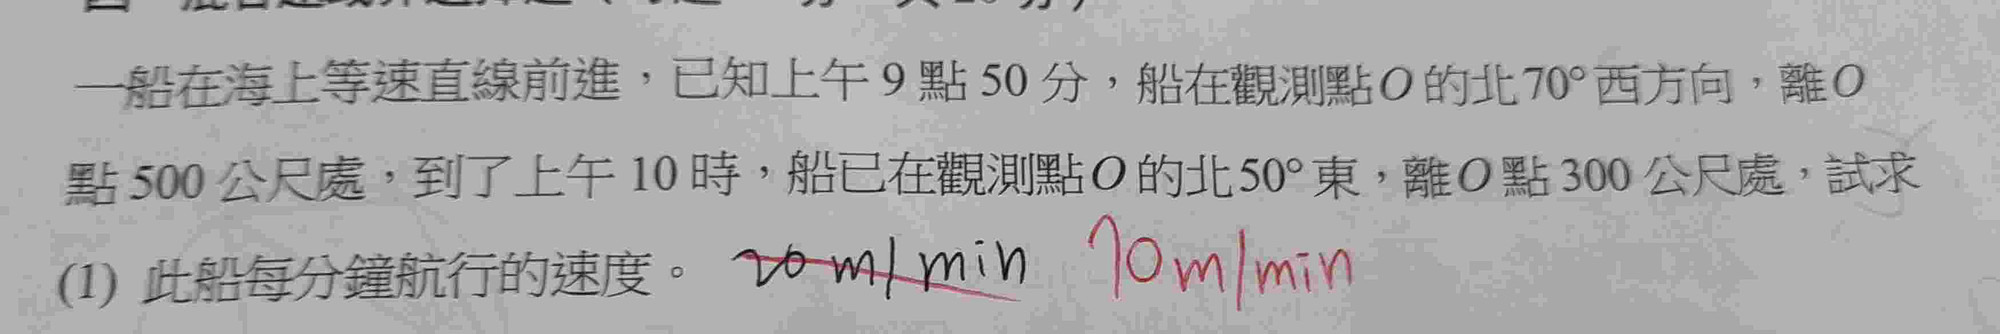 一船在海上等速直線前進，已知上午 9 點 50 分，船在觀測點 O 的北 70° 西方向，離 O
點 500 公尺處，到了上午 10 時，船已在觀測點 O 的北 50° 東，離 O 點 300 公尺處，試求
(1) 此船每分鐘航行的速度。 20 m/min 70 m/min